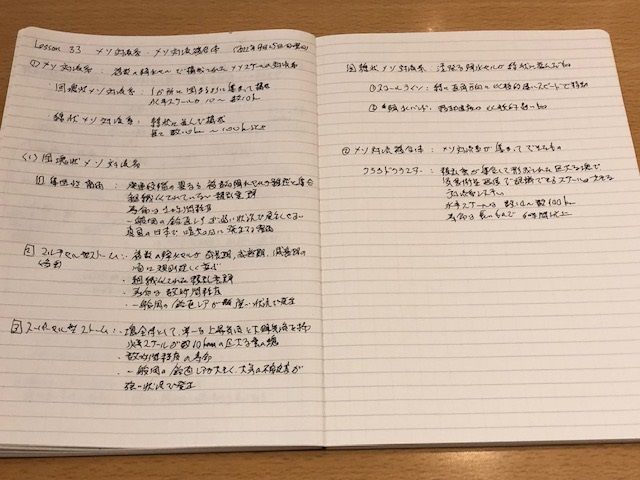 Lesson 33 メソ対流系・メソ対流複合体 (2022年9月25日
① メソ対流系：複数の降水セルで構成されたメソスケールの対流系
団塊状メソ対流系：1か所に固まるように集まって構成
水平スケールが10〜数10k
線状メソ対流系：線状に並んで構成
長さ数10km〜100k
(1) 団塊状メソ対流系
① 気団性雷雨：発達段階の異なる複数の降水セルが雑然と集合
組織化されていない積乱雲群
寿命は1時間程度
一般風の鉛直シアが弱い状況で発生
真夏の日本で
② マルチセル型ストーム：複数の降水セルが成長期、成熟期、減衰期の
順に規則正しく並ぶ
・組織化された積乱雲群
・寿命は数時間程度
・一般風の鉛直シアが 強い状況で発生
③ スーパーセル型ストーム：・塊全体として、単一の上昇気流と下降気流を持
水平スケールが数10kmの巨大な雲の塊
・数時間程度の寿命
・一般風の鉛直シアが大きく、大気の不安定が
強い状況で発生
団塊状メソ対流系 活発な降水セルが線状に並んだもの
① スコールライン：線に直角方向に比較的速いスピードで移動
② 降水バンド：移動速度の比較的遅いもの
② メソ対流複合体：メソ対流系が集まってできたもの
クラウドクラスター：積乱雲が集合して形成された巨大な塊で
気象衛星画像で認識できるスケールの大きな
対流システム
水平スケールは数10〜数100k
寿命は長いもので